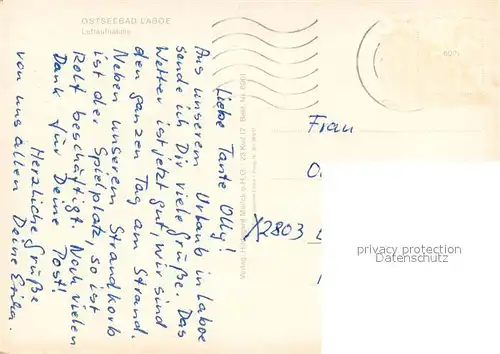 OSTSEEBAD LABOE
Luftaufnahme
Liebe Tante Olly!
Aus unserem Urlaub in Laboe
sende ich Dir viele Grüße. Das
Wetter ist jetzt gut, wir sind
den ganzen Tag am Strand.
Neben unserem Strandkorb
ist der Spielplatz, so ist
Rolf beschäftigt. Noch vielen
Dank für Deine Post!
Herzliche Grüße
von uns allen Deine Erika.
Frau
2803
privacy protection
Datenschutz